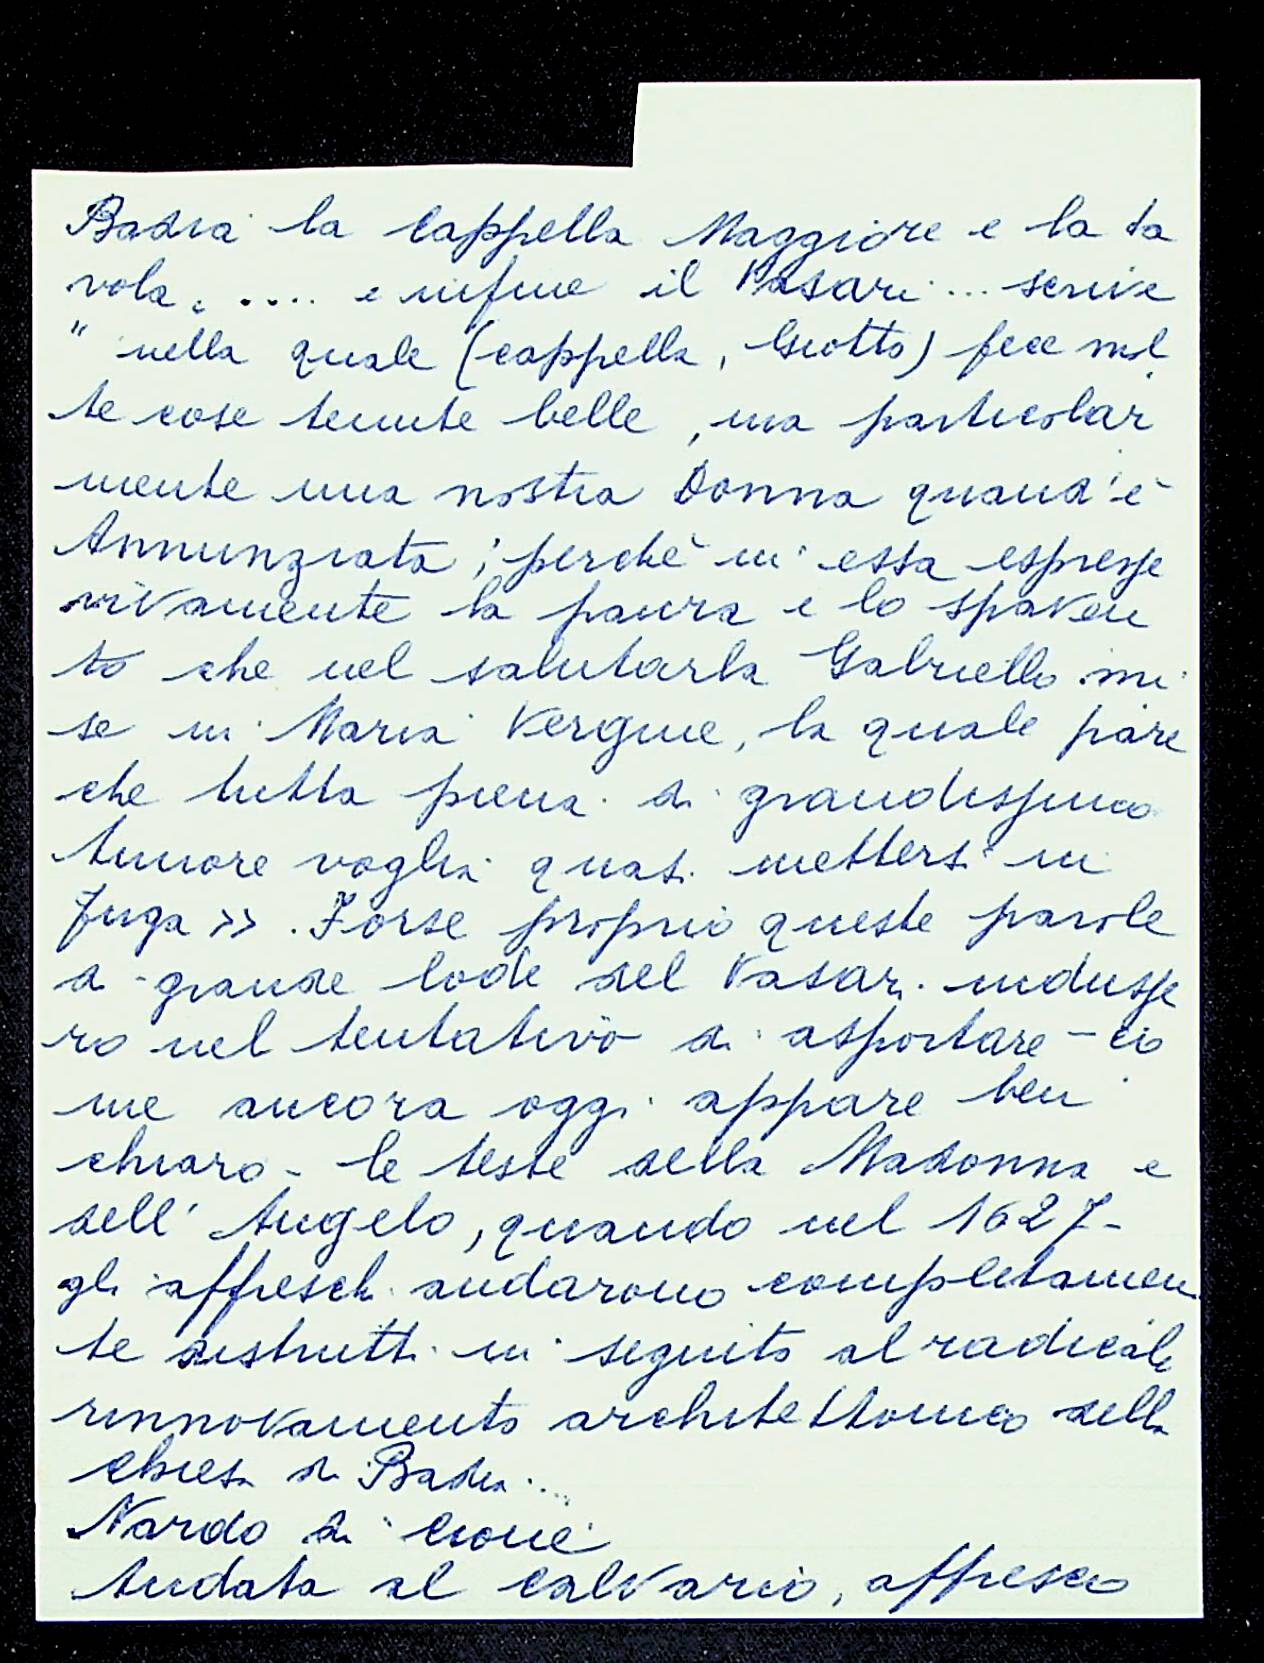 Badia la Cappella Maggiore e la ta
vola „ .... e infine il Vasari ... scrive
" nella quale (cappella, Giotto) fece mol
te cose tenute belle, ma particolar
mente una nostra Donna quand'è
Annunziata; perchè in essa espresse
vivamente la paura e lo spaven
to che nel salutarla Gabriello mi
se in Maria Vergine, la quale pare
che tutta piena di grandissimo
timore voglia quasi mettersi in
fuga >>. Forse proprio queste parole
di grande lode del Vasari indusse
ro nel tentativo di asportare - co
me ancora oggi appare ben
chiaro - le teste della Madonna e
dell' Angelo, quando nel 1627 -
gli affreschi andarono completamen
te distrutti in seguito al radicale
rinnovamento architettonico della
chiesa di Badia ...
Nardo di Cione
Andata al Calvario, affresco